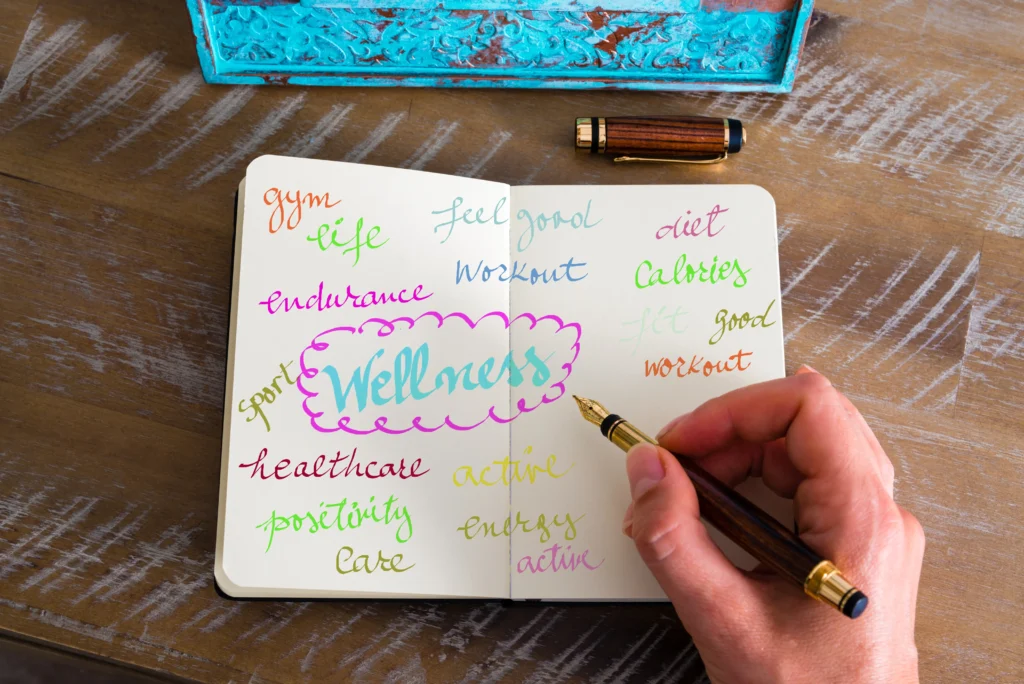 gym
life
feel good
diet
workout
Calories
endurance
fit
good
Wellness
workout
sport
healthcare
active
positivity
energy
Care
active